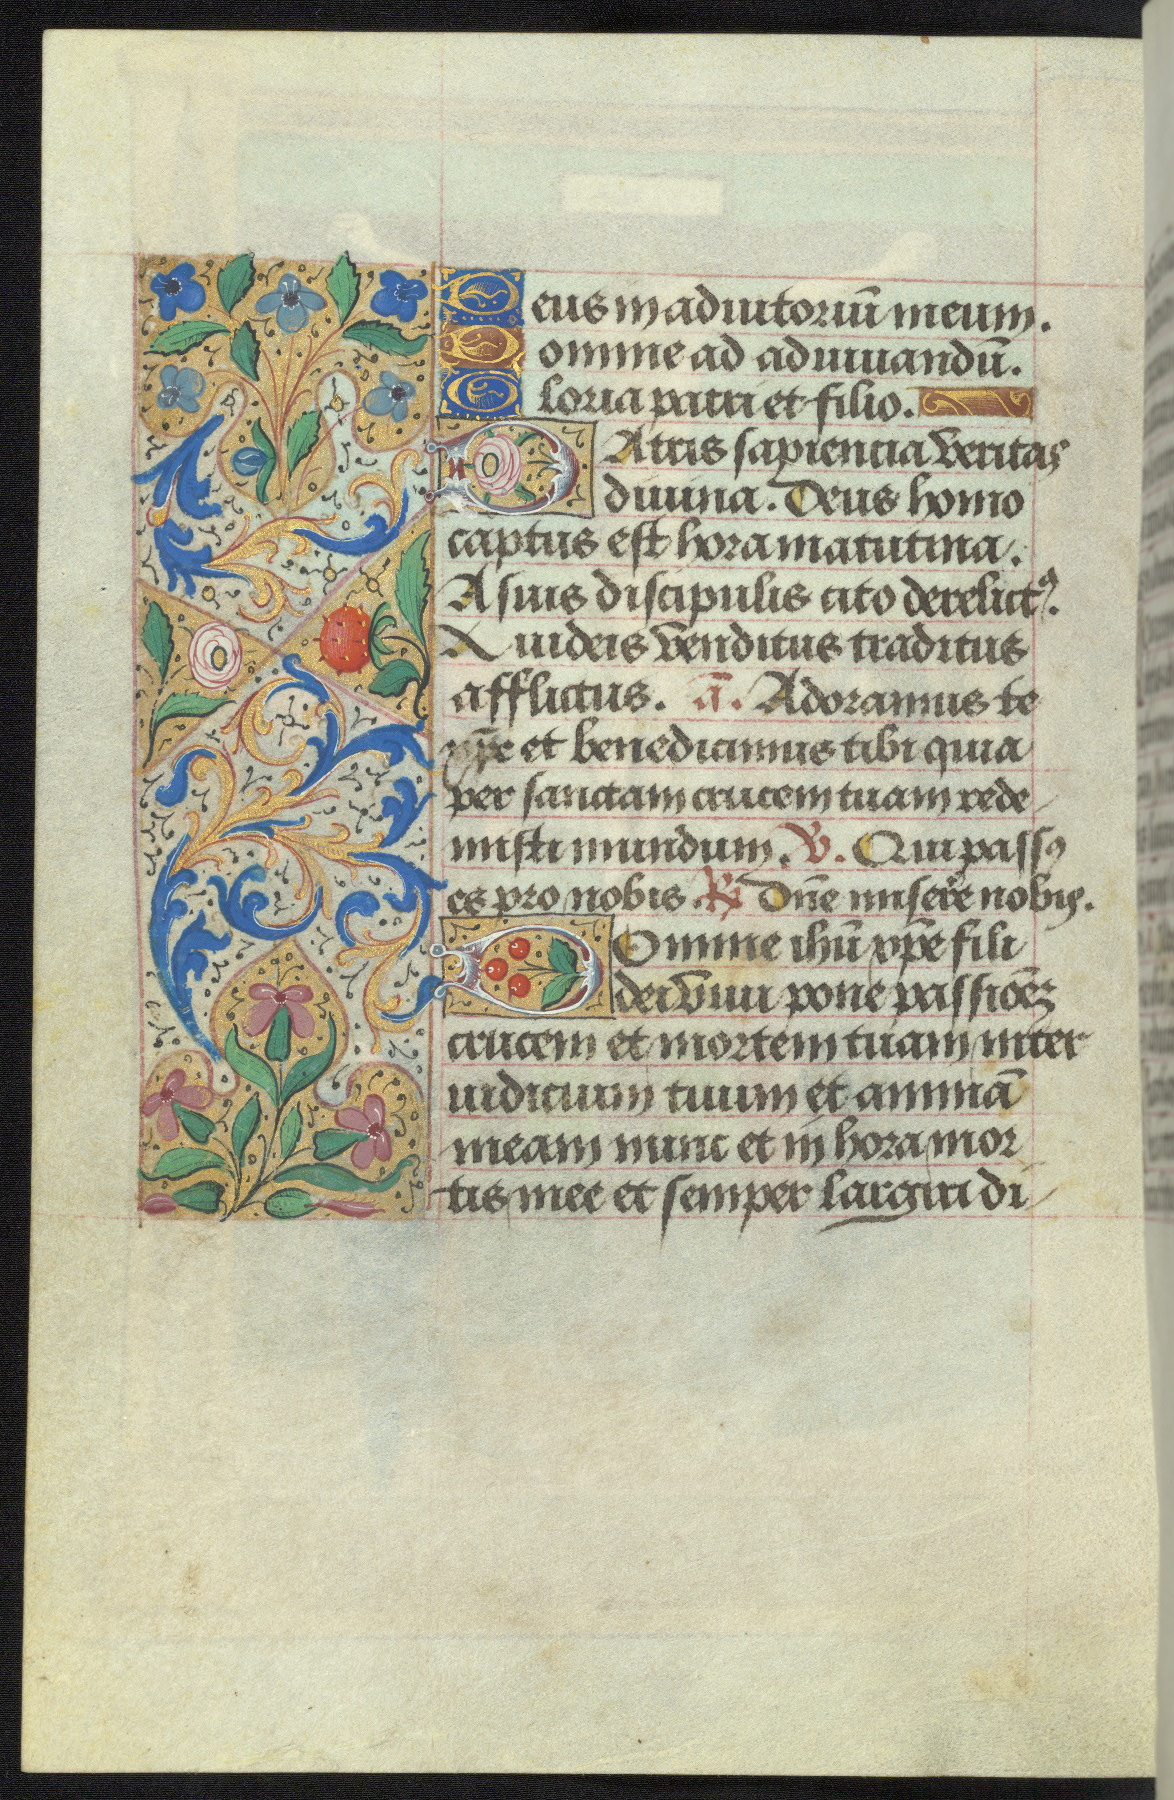 Deus in adiutoriũ meum.
Domine ad adiuuandũ.
Gloria patri et filio.
PAtris sapiencia veritas
diuina. Deus homo
captus est hora matutina.
A suis discipulis cito derelictꝰ.
A iudeis venditus traditus
afflictus. a᷃. Adoramus te
xp̃e et benedicimus tibi quia
per sanctam crucem tuam rede
misti mundum. ℣. Qui passꝰ
es pro nobis. ℟ Dñe miserẽ nobis.
DOmine ihũ xp̃e fili
dei viui pone passioẽꝫ
crucem et mortem tuam inter
iudicium tuum et animã
meam nunc et in hora mor
tis mee et semper largiri di